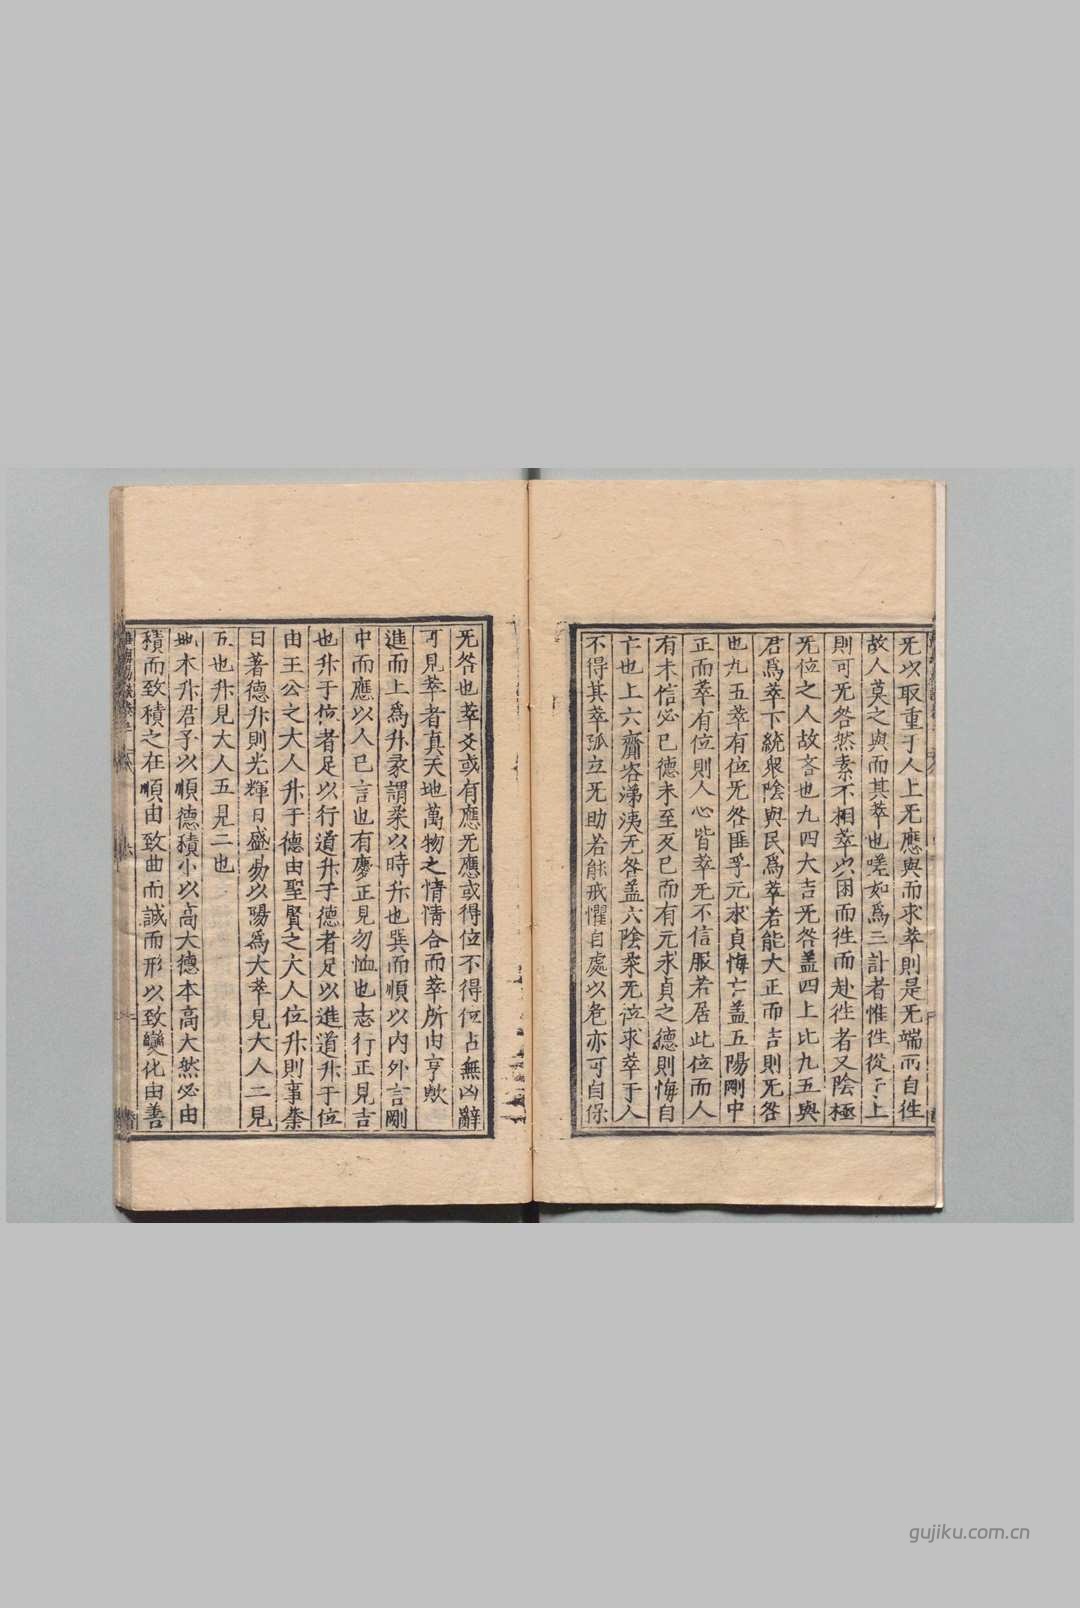 无以取重于人上无應與而求萃則是无端而自徃
故人莫之與而其萃也嗟如爲三計者惟徃從于上
則可无咎然素不相萃以困而徃而赴徃者又陰極
无位之人故吝也九四大吉无咎蓋四上比九五與
君爲萃下統衆陰與民爲萃若能大正而吉則无咎
也九五萃有位无咎匪孚元求貞悔亡蓋五陽剛中
正而萃有位則人心皆萃无不信服若居此位而人
有未信必已德未至反已而有元求貞之德則悔自
亡也上六齎咨涕洟无咎蓋六陰柔无位求萃于人
不得其萃孤立无助若能戒懼自處以危亦可自保
无咎也萃爻或有應无應或得位不得位占無凶辭
可見萃者真天地萬物之情情合而萃所由亨歟
進而上爲升彖謂柔以時升也巽而順以内外言剛
中而應以人已言也有慶正見勿恤也志行正見吉
也升于位者足以行道升于德者足以進道升于位
由王公之大人升于德由聖賢之大人位升則事業
日著德升則光輝日盛易以陽爲大萃見大人二見
五也升見大人五見二也
地木升君子以順德積小以高大德本高大然必由
積而致積之在順由致曲而誠而形以致變化由善
gujiku.com.cn